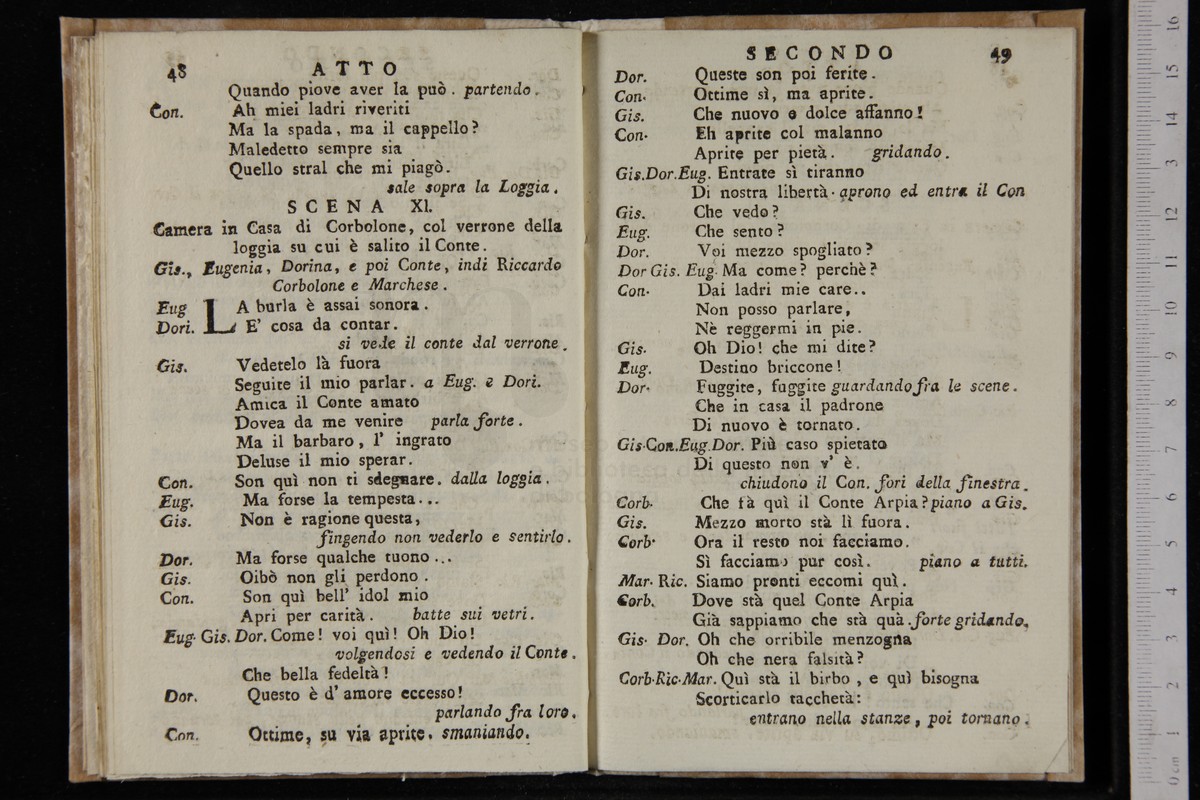 48 ATTO
Quando piove aver la può. partendo.
Con. Ah miei ladri riveriti
Ma la spada, ma il cappello?
Maledetto sempre sia
Quello stral che mi piagò.
sale sopra la Loggia.
SCENA XI.
Camera in Casa di Corbolone, col verrone della
loggia su cui è salito il Conte.
Gis., Eugenia, Dorina, e poi Conte, indi Riccardo
Corbolone e Marchese.
Eug LA burla è assai sonora.
Dori. E' cosa da contar.
si vede il conte dal verrone.
Gis. Vedetelo là fuora
Seguite il mio parlar. a Eug. e Dori.
Amica il Conte amato
Dovea da me venire parla forte.
Ma il barbaro, l' ingrato
Deluse il mio sperar.
Con. Son quì non ti sdegnare. dalla loggia.
Eug. Ma forse la tempesta...
Gis. Non è ragione questa,
fingendo non vederlo e sentirlo.
Dor. Ma forse qualche tuono...
Gis. Oibò non gli perdono.
Con. Son quì bell' idol mio
Apri per carità. batte sui vetri.
Eug. Gis. Dor. Come! voi quì! Oh Dio!
volgendosi e vedendo il Conte.
Che bella fedeltà!
Dor. Questo è d' amore eccesso!
parlando fra loro.
Con. Ottime, su via aprite. smaniando.
SECONDO 49
Dor. Queste son poi ferite.
Con. Ottime sì, ma aprite.
Gis. Che nuovo e dolce affanno!
Con. Eh aprite col malanno
Aprite per pietà. gridando.
Gis. Dor. Eug. Entrate sì tiranno
Di nostra libertà. aprono ed entra il Con
Gis. Che vedo?
Eug. Che sento?
Dor. Voi mezzo spogliato?
Dor Gis. Eug. Ma come? perchè?
Con. Dai ladri mie care..
Non posso parlare,
Nè reggermi in pie.
Gis. Oh Dio! che mi dite?
Eug. Destino briccone!
Dor. Fuggite, fuggite guardando fra le scene.
Che in casa il padrone
Di nuovo è tornato.
Gis. Con. Eug. Dor. Più caso spietato
Di questo non v' è.
chiudono il Con. fori della finestra.
Corb. Che fà quì il Conte Arpia? piano a Gis.
Gis. Mezzo morto stà lì fuora.
Corb. Ora il resto noi facciamo.
Sì facciamo pur così. piano a tutti.
Mar. Ric. Siamo pronti eccomi quì.
Corb. Dove stà quel Conte Arpia
Già sappiamo che stà quà. forte gridando.
Gis. Dor. Oh che orribile menzogna
Oh che nera falsità?
Corb. Ric. Mar. Quì stà il birbo, e quì bisogna
Scorticarlo taccheta:
entrano nella stanze, poi tornano.